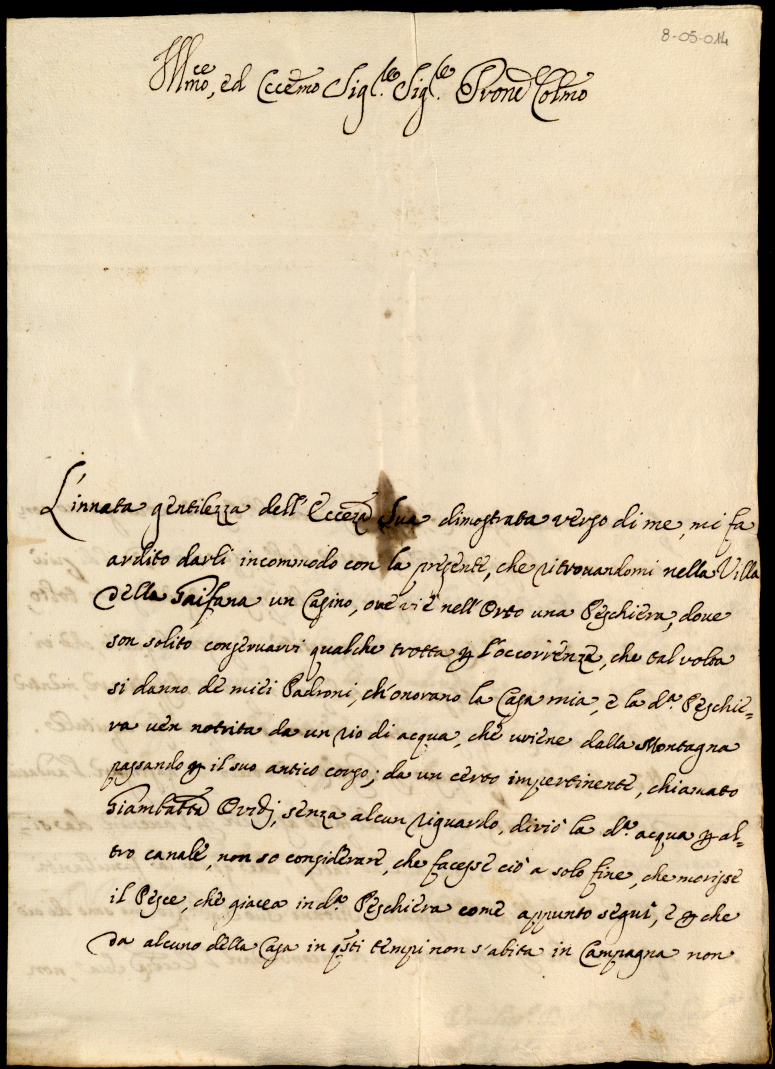 8-05-014
Ill.mo, ed Ecc.mo Sig.re Sig.re Prone Colmo
L'innata gentilezza dell'Eccza Sua dimostrata verso di me, mi fa
ardito darli incommodo con la presente, che ritrouandomi nella Villa
della Gaifana un Casino, ove vi è nell'Orto una Peschiera, dove
son solito conseruarvi qualche trotta p l'occorrenze, che tal volta
si danno de miei Padroni, ch'onorano la Casa mia, e la d.a Peschie=
ra uen notrita da un rio di acqua, che uiene dalla Montagna
passando p il suo antico corso; da un certo impertinente, chiamato
Giambatta Ovidj, senza alcun riguardo, diviò la d.a acqua p al=
tro canale, non so considerare, che facesse ciò a solo fine, che morisse
il Pesce, che giacea in d.a Peschiera come appunto seguì, e p che
da alcuno della Casa in qsti tempi non s'abita in Campagna non